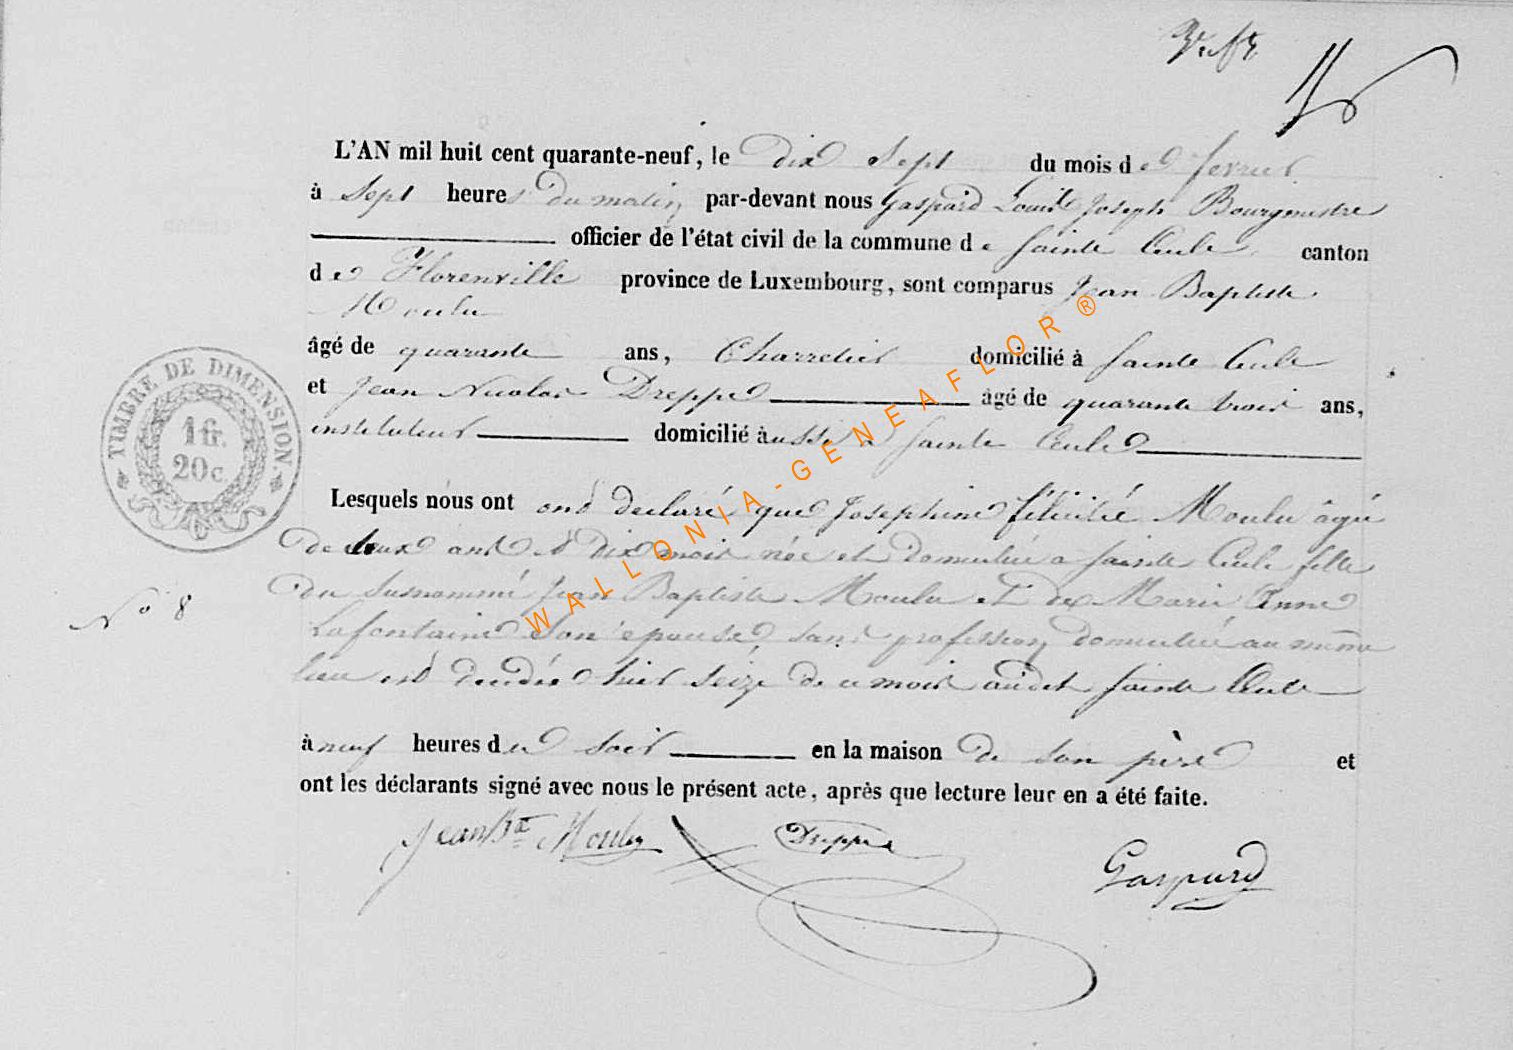 L'AN mil huit cent quarante-neuf, le dix Sept du mois de fevrier
à Sept heures du matin par-devant nous Gaspard Louis Joseph Bourgmestre
officier de l'état civil de la commune de Sainte Cecile canton
de Florenville province de Luxembourg, sont comparus Jean Baptiste
Moulu
âgé de quarante ans, Charretier domicilié à Sainte Cecile
et Jean Nicolas Dreppe âgé de quarante trois ans,
instituteur domicilié à aussi à Sainte Cecile
Lesquels nous ont ont declaré que Josephine félicité Moulu âgée
de deux ans et dix mois née et domiciliée a Sainte Cecile fille
du Susnommé Jean Baptiste Moulu et de Marie Anne
Lafontaine Son épouse, sans profession domiciliée au même
lieu est décédée hier Seize de ce mois audit Sainte Cecile
à neuf heures du soir en la maison de Son père et
ont les déclarants signé avec nous le présent acte, après que lecture leur en a été faite.
Jean Bte Moulu Dreppe Gaspard
N° 8
TIMBRE DE DIMENSION.
1 fr.
20 c
WALLONIA-GENEAFLOR®